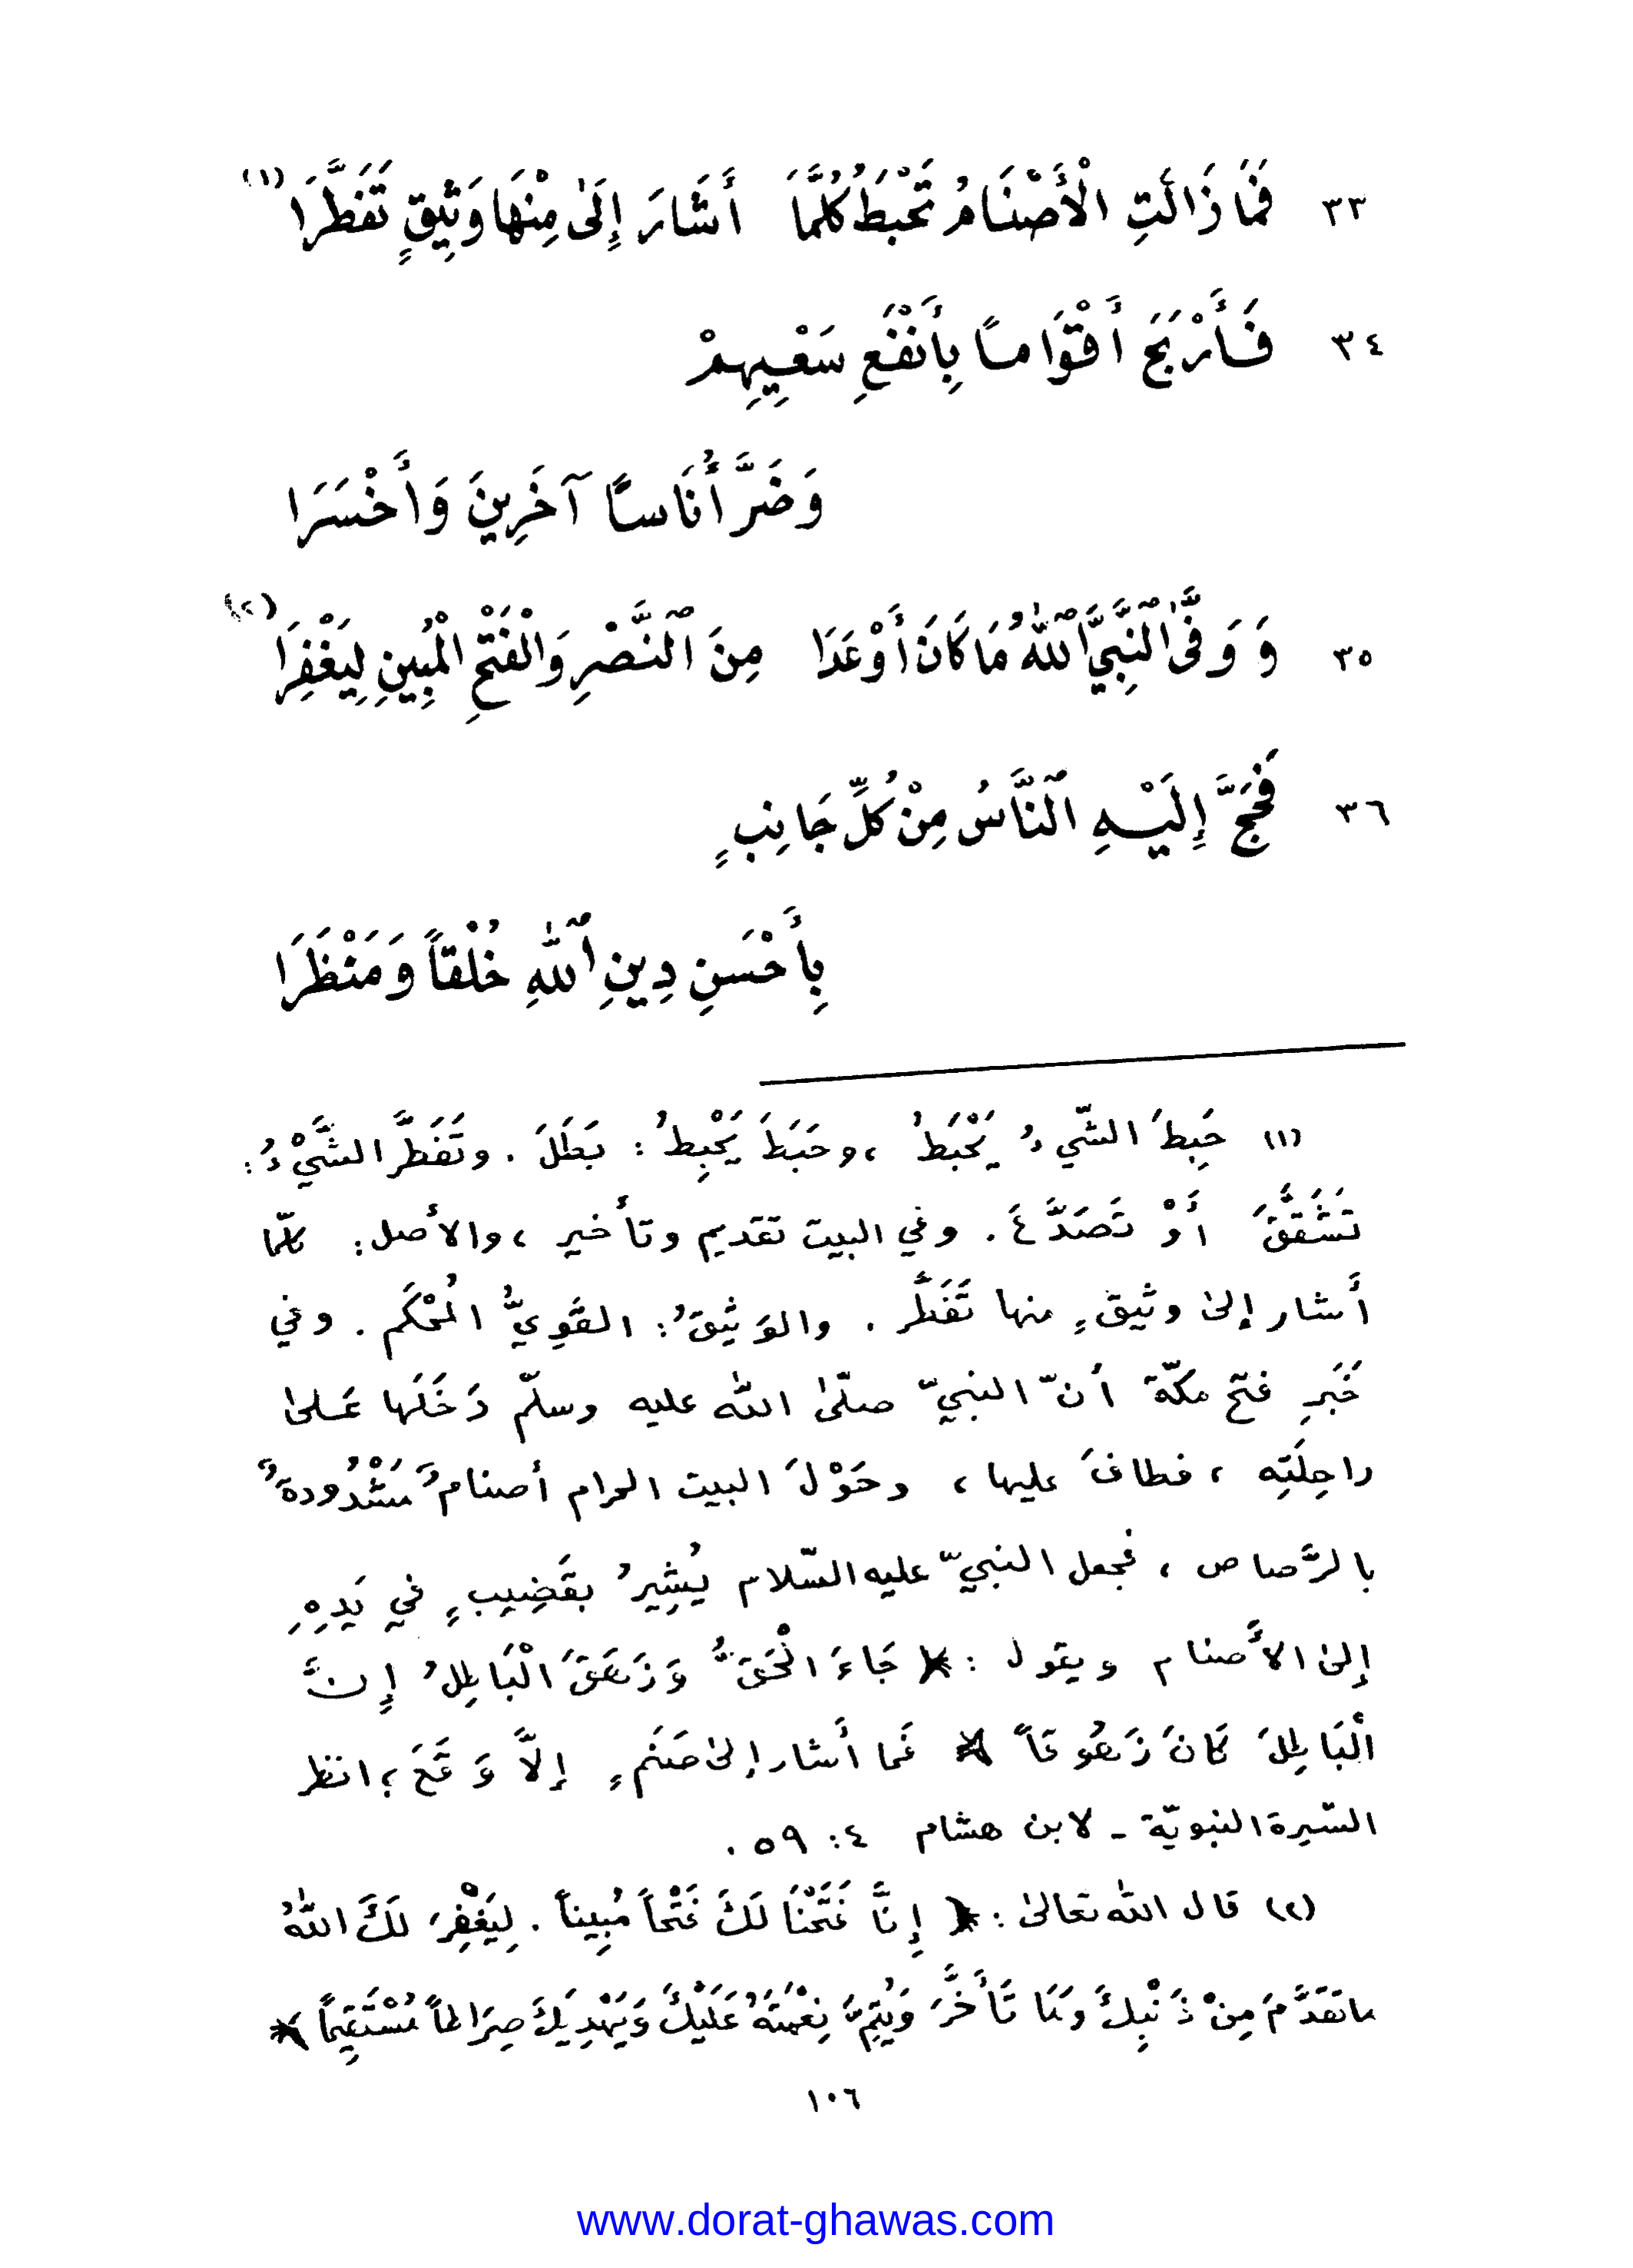 ٣٣ فَمَا زَالَتِ الْأَصْنَامُ تَحْبَطُ كُلَّمَا أَشَارَ إِلَىٰ مِنْهَا وَثِيقٍ تَفَطَّرَا (١)
٣٤ فَأَرْبَحَ أَقْوَامًا بِأَنْفَعِ سَعْيِهِمْ
وَضَرَّ أُنَاسًا آخَرِينَ وَأَخْسَرَا
٣٥ وَوَفَّى النَّبِيَّ اللّٰهُ مَا كَانَ أَوْعَدَا مِنَ النَّصْرِ وَالْفَتْحِ الْمُبِينِ لِيَغْفِرَا (٢)
٣٦ فَحَجَّ إِلَيْهِ النَّاسُ مِنْ كُلِّ جَانِبٍ
بِأَحْسَنِ دِينِ اللّٰهِ خُلْقاً وَمَنْظَرَا
(١) حَبِطَ الشّيءُ يَحْبَطُ ، وحَبَطَ يَحْبِطُ : بَطَلَ . وتَفَطَّرَ الشَّيْءُ :
تَشَقَّقَ أَوْ تَصَدَّعَ . وفي البيت تقديم وتأخير ، والأصل : كلّما
أَشار إلىٰ وثيقٍ منها تَفَطَّر . والوَثِيقُ : القَوِيُّ المُحْكَم . وفي
خَبَرِ فتح مكّة أنّ النبيّ صلّىٰ اللّٰه عليه وسلّم دَخَلَها عَلىٰ
راحِلَتِه ، فطافَ عليها ، وحَوْلَ البيت الحرام أصنامٌ مَشْدُودةٌ
بالرَّصاص ، فجعل النبيّ عليه السّلام يُشِيرُ بقَضِيبٍ في يَدِهِ
إلىٰ الأَصنام ويقول : ﴿ جَاءَ الْحَقُّ وَزَهَقَ الْبَاطِلُ إِنَّ
الْبَاطِلَ كَانَ زَهُوقاً ﴾ فَما أَشار إلىٰ صَنَمٍ إلاَّ وَقَعَ ؛ انظر
السّيرة النبويّة - لابن هشام ٤ : ٥٩ .
(٢) قال اللّٰه تعالىٰ : ﴿ إِنَّا فَتَحْنَا لَكَ فَتْحاً مُبِيناً . لِيَغْفِرَ لَكَ اللّٰهُ
ما تَقَدَّمَ مِنْ ذَنْبِكَ وَمَا تَأَخَّرَ وَيُتِمَّ نِعْمَتَهُ عَلَيْكَ وَيَهْدِيَكَ صِرَاطاً مُسْتَقِيماً ﴾
١٠٦
www.dorat-ghawas.com